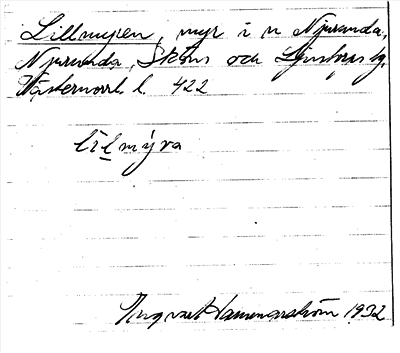 Lillmyren, myr i n Njurunda,
Njurunda, Sköns och Ljustorps tg,
Västernorrl l. 422
lìlmýra
Ingvar Hammarström 1932